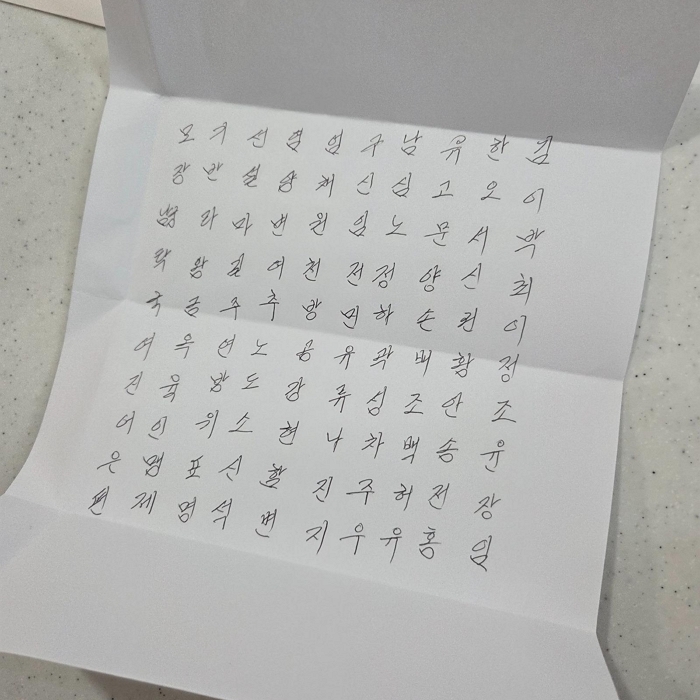 모 기 선 염 엄 구 남 유 한 김
장 반 설 양 채 신 심 고 오 이
남궁 라 마 변 원 임 노 문 서 박
탁 왕 길 여 천 전 정 양 신 최
국 금 주 추 방 민 하 손 권 이
여 옥 연 노 공 유 곽 배 황 정
진 육 방 도 강 류 성 조 안 조
어 인 위 소 현 나 차 백 송 윤
은 맹 표 신 함 진 주 허 전 장
편 제 명 석 변 지 우 유 홍 임